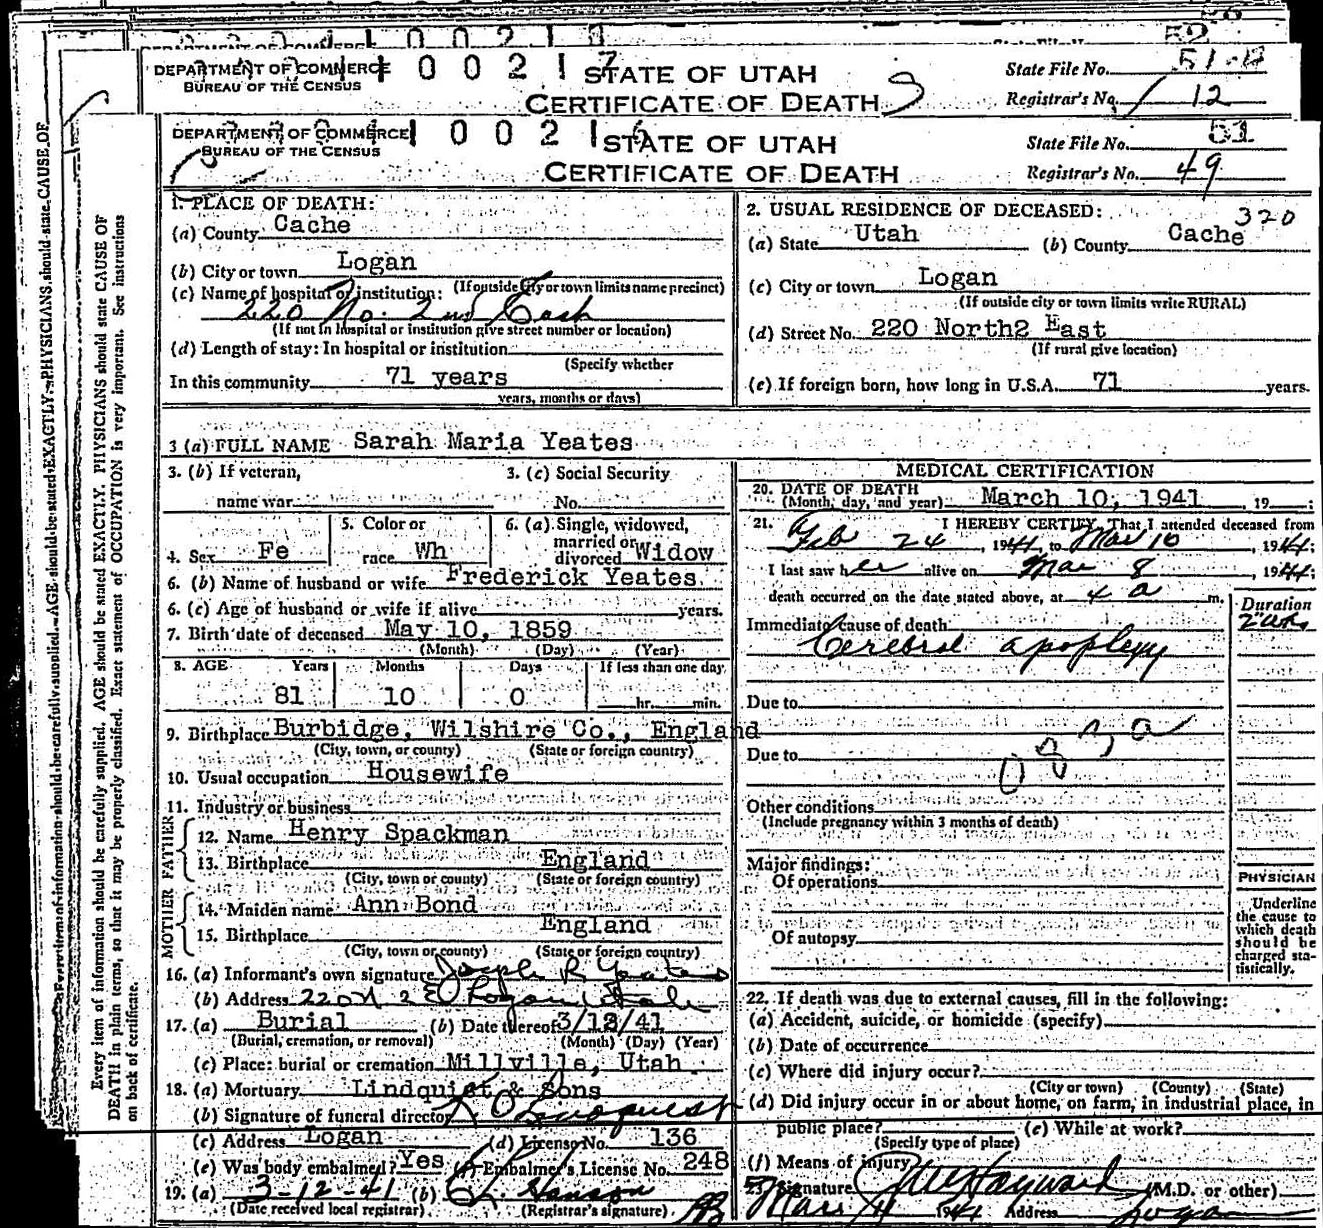 DEPARTMENT OF COMMERCE
BUREAU OF THE CENSUS
STATE OF UTAH
CERTIFICATE OF DEATH
State File No. 51-A
Registrar's No. 12
DEPARTMENT OF COMMERCE
BUREAU OF THE CENSUS
STATE OF UTAH
CERTIFICATE OF DEATH
State File No. 51
Registrar's No. 49
Every item of information should be carefully supplied. AGE should be stated EXACTLY. PHYSICIANS should state CAUSE OF
DEATH in plain terms, so that it may be properly classified. Exact statement of OCCUPATION is very important. See instructions
on back of certificate.
1. PLACE OF DEATH:
(a) County Cache
(b) City or town Logan
(If outside city or town limits name precinct)
(c) Name of hospital or institution:
220 No. 2nd East
(If not in hospital or institution give street number or location)
(d) Length of stay: In hospital or institution
(Specify whether
In this community 71 years
years, months or days)
2. USUAL RESIDENCE OF DECEASED: 320
(a) State Utah (b) County Cache
(c) City or town Logan
(If outside city or town limits write RURAL)
(d) Street No. 220 North2 East
(If rural give location)
(e) If foreign born, how long in U.S.A. 71 years.
3 (a) FULL NAME Sarah Maria Yeates
3. (b) If veteran,
name war
3. (c) Social Security
No.
4. Sex Fe
5. Color or
race Wh
6. (a) Single, widowed,
married or
divorced Widow
6. (b) Name of husband or wife Frederick Yeates
6. (c) Age of husband or wife if alive years.
7. Birth date of deceased May 10, 1859
(Month) (Day) (Year)
8. AGE Years Months Days If less than one day
81 10 0 hr. min.
9. Birthplace Burbidge, Wilshire Co., England
(City, town, or county) (State or foreign country)
10. Usual occupation Housewife
11. Industry or business
FATHER
12. Name Henry Spackman
13. Birthplace England
(City, town or county) (State or foreign country)
MOTHER
14. Maiden name Ann Bond
15. Birthplace England
(City, town or county) (State or foreign country)
16. (a) Informant's own signature Joseph R Yeates
(b) Address 220 N 2 E Logan Utah
17. (a) Burial (b) Date thereof 3/12/41
(Burial, cremation, or removal) (Month) (Day) (Year)
(c) Place: burial or cremation Millville, Utah
18. (a) Mortuary Lindquist & Sons
(b) Signature of funeral director Lindquist
(c) Address Logan (d) License No. 136
(e) Was body embalmed? Yes (f) Embalmer's License No. 248
19. (a) 3-12-41 (b) Hanson
(Date received local registrar) (Registrar's signature)
MEDICAL CERTIFICATION
20. DATE OF DEATH
(Month, day, and year) March 10, 1941, 19
21. I HEREBY CERTIFY, That I attended deceased from
Feb 24, 1941, to Mar 10, 1941;
I last saw her alive on Mar 8, 1941;
death occurred on the date stated above, at 4 a m.
Duration
Immediate cause of death
Cerebral apoplexy
Due to
083a
Due to
Other conditions
(Include pregnancy within 3 months of death)
Major findings:
Of operations
Of autopsy
PHYSICIAN
Underline
the cause to
which death
should be
charged sta-
tistically.
22. If death was due to external causes, fill in the following:
(a) Accident, suicide, or homicide (specify)
(b) Date of occurrence
(c) Where did injury occur?
(City or town) (County) (State)
(d) Did injury occur in or about home, on farm, in industrial place, in
public place? (e) While at work?
(Specify type of place)
(f) Means of injury
23. Signature Hayward (M.D. or other)
Mar 11 1941 Address Logan